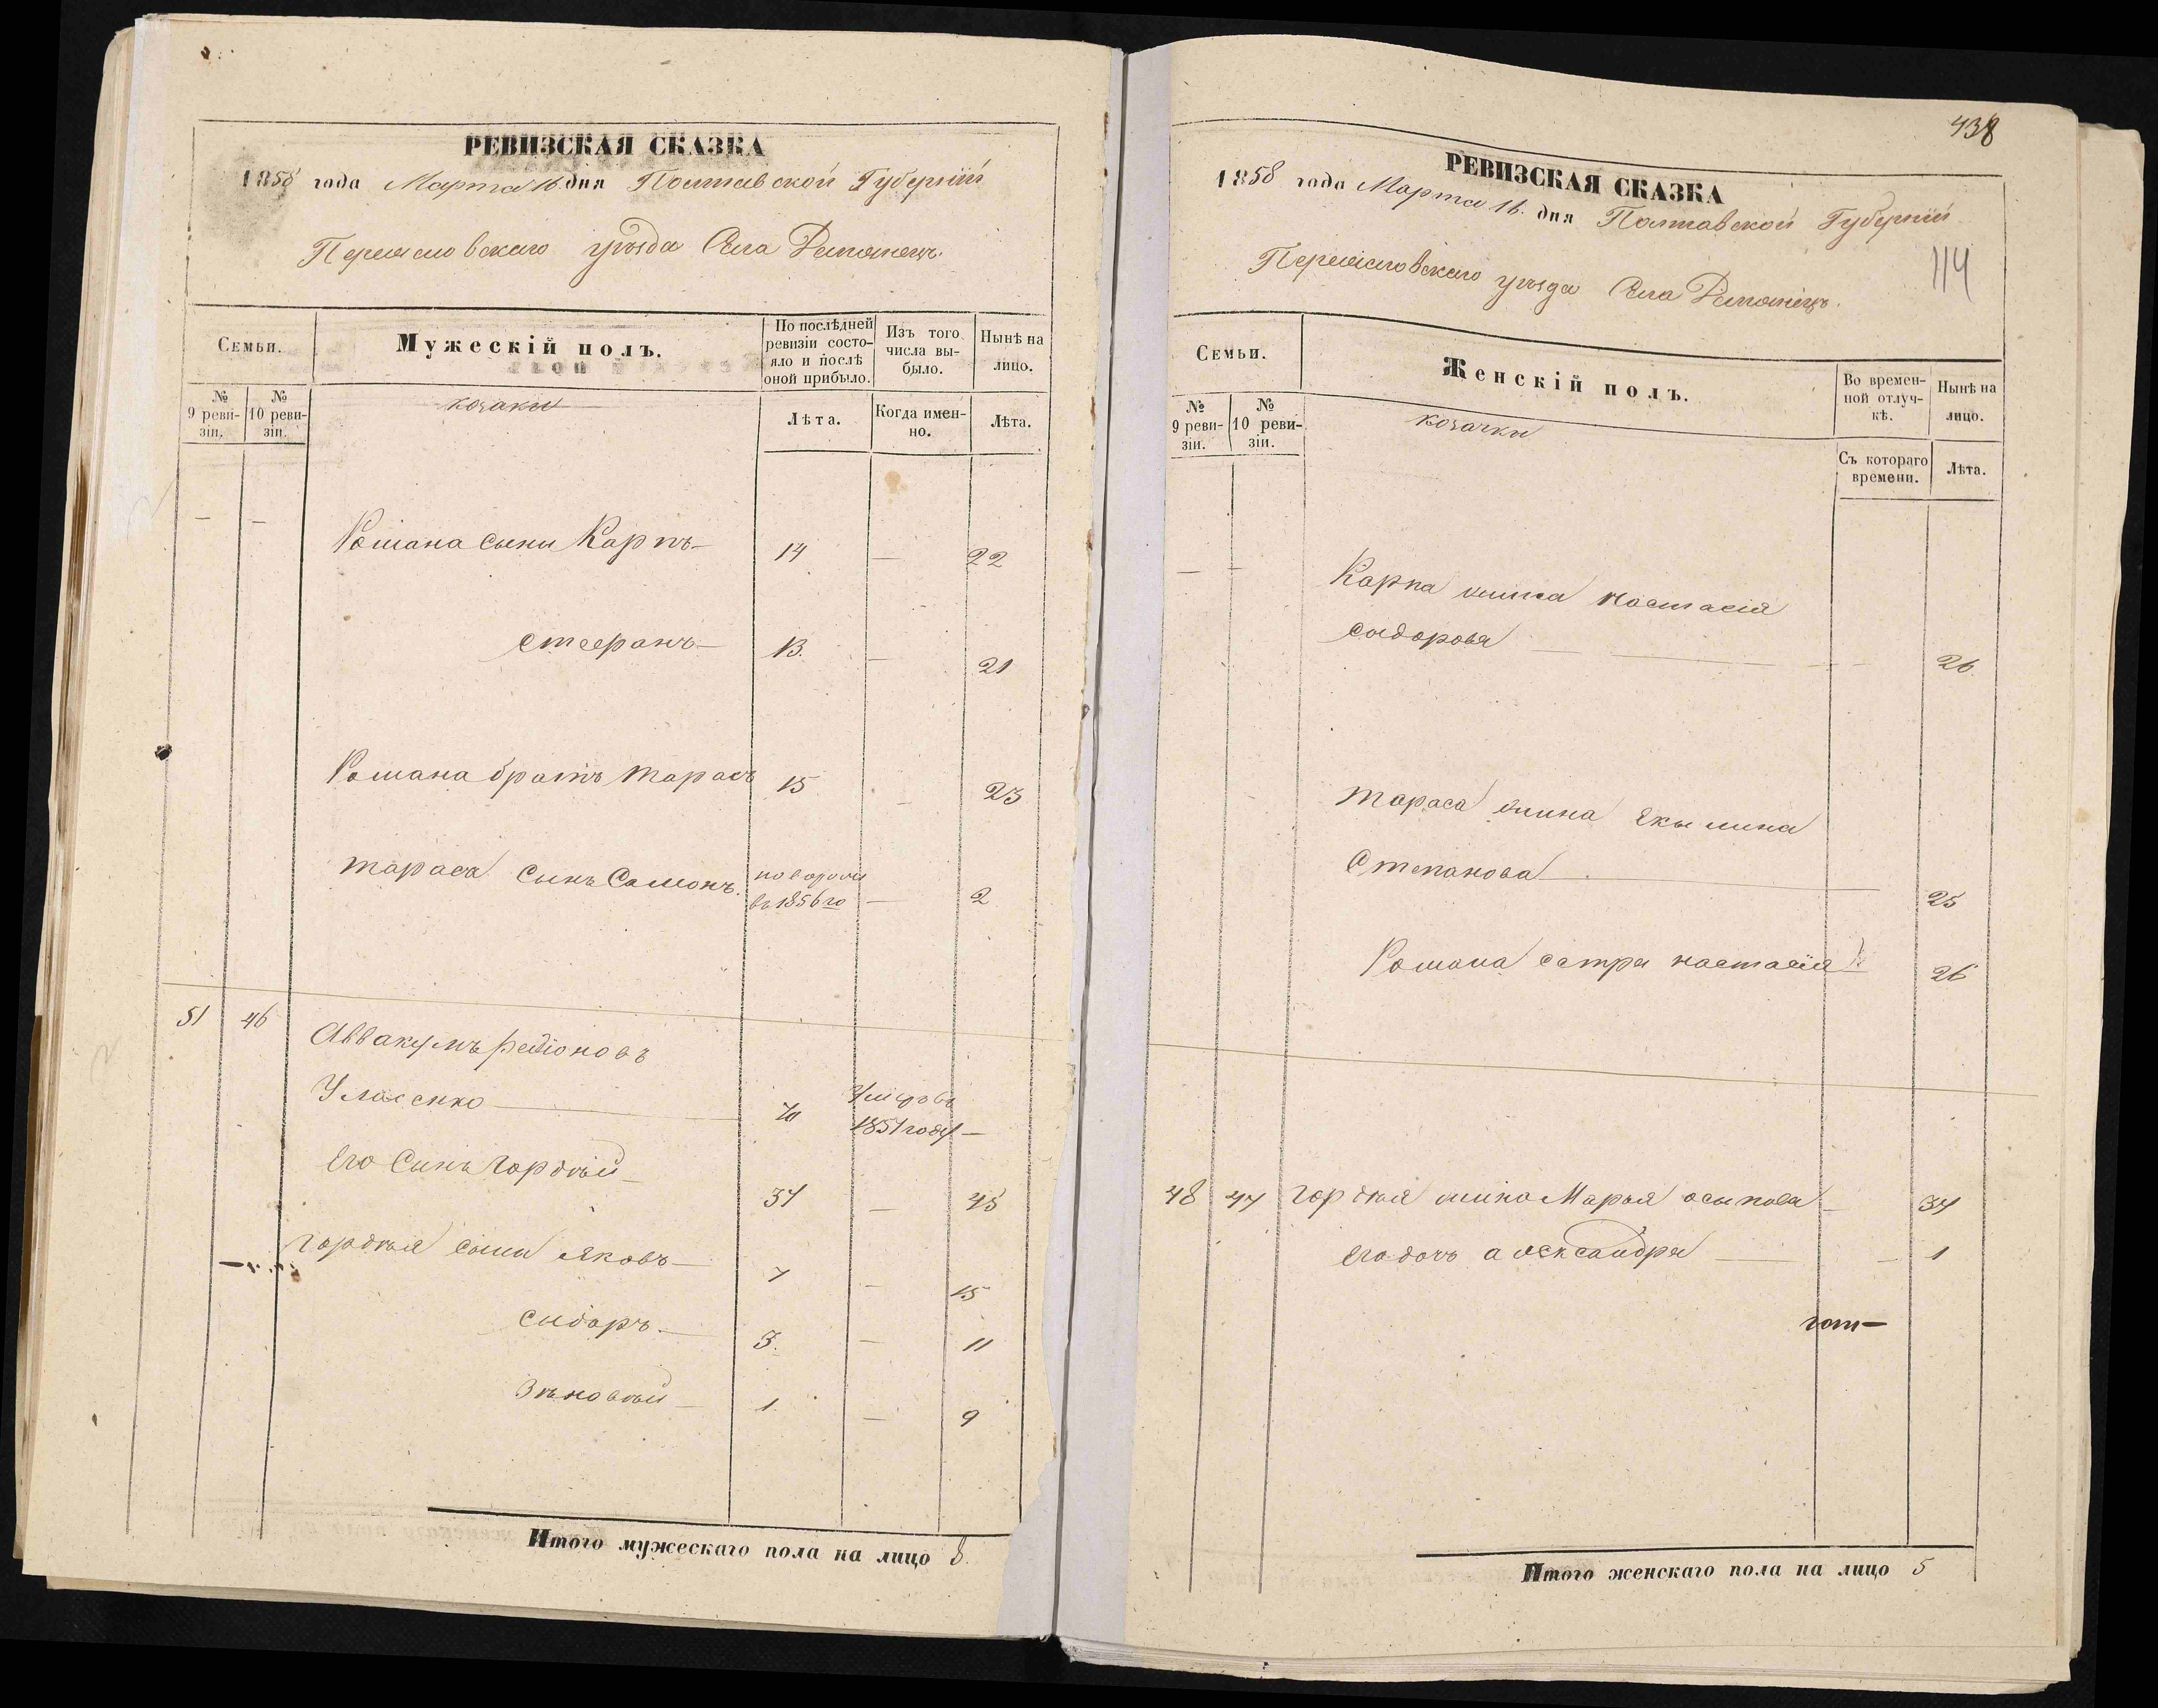 РЕВИЗСКАЯ СКАЗКА
1858 года Марта 16. дня Полтавской Губерніи
Переясловскаго уѣзда Села
Семьи.
Мужескій полъ.
По послѣдней ревизіи состояло и послѣ оной прибыло.
Изъ того числа выбыло.
Нынѣ на лицо.
№ 9 ревизіи.
№ 10 ревизіи.
козаки
Лѣта.
Когда именно.
Лѣта.
— — Романа сыны Карпъ — 14 — 22
Стефанъ — 13. — 21
Романа братъ Тарасъ 15 — 23
Тараса сынъ Самонъ. въ 1856го — 2
51 46 Аввакумъ Родіоновъ
Власенко — 70 1851 году —
Его Сынъ Гордѣй — 37 — 45
Гордѣя сыны Яковъ — 7 — 15
Сидоръ — 3. — 11
Зѣновѣй — 1. — 9
Итого мужескаго пола на лицо 8.
438
РЕВИЗСКАЯ СКАЗКА
1858 года Марта 16. дня Полтавской Губерніи
Переясловскаго уѣзда Села
114
Семьи.
Женскій полъ.
Во временной отлучкѣ.
Нынѣ на лицо.
№ 9 ревизіи.
№ 10 ревизіи.
козачки
Съ котораго времени.
Лѣта.
— — Карпа жина Настасія
Сидорова — 26.
Тараса жина Екылина
Степанова — 25
Романа сестра Настасія 26
48 47 Гордѣя жина Марья Осыпова — 34
Его дочь Александра — — 1
Итого женскаго пола на лицо 5